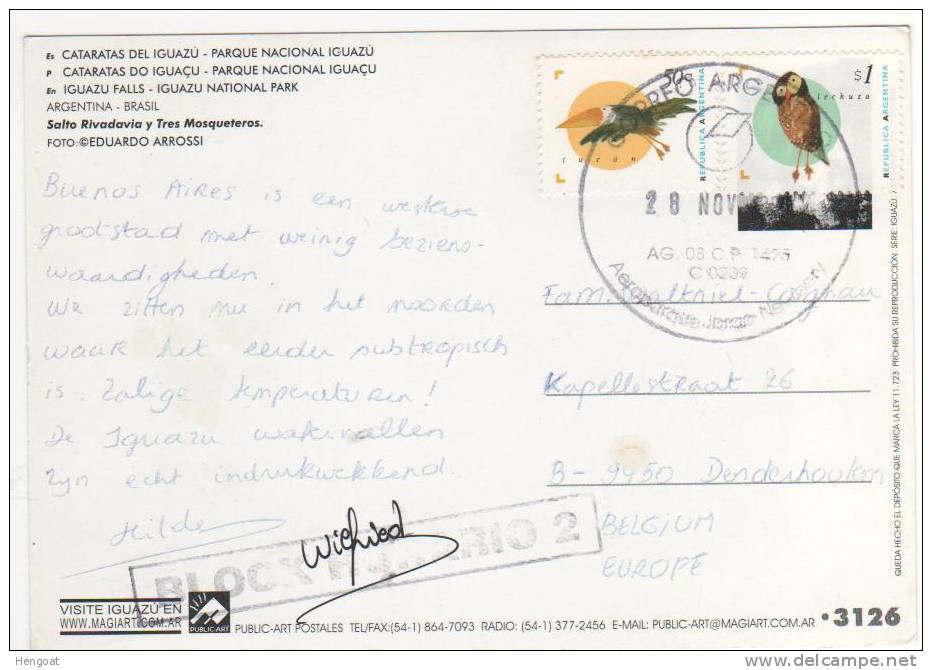 Es CATARATAS DEL IGUAZÚ - PARQUE NACIONAL IGUAZÚ
P CATARATAS DO IGUAÇU - PARQUE NACIONAL IGUAÇU
En IGUAZU FALLS - IGUAZU NATIONAL PARK
ARGENTINA - BRASIL
Salto Rivadavia y Tres Mosqueteros.
FOTO:©EDUARDO ARROSSI
Buenos Aires is een westerse
grootstad met weinig beziens-
waardigheden.
We zitten nu in het noorden
waar het eerder subtropisch
is. Zalige temperaturen!
De Iguazu watervallen
zijn echt indrukwekkend.
Hilde
Wilfried
50c
tucán
REPUBLICA ARGENTINA
$1
lechuza
REPUBLICA ARGENTINA
CORREO ARGENTINO
28 NOV
AG. 08 C.P 1425
C 0239
Aeroparque Jorge Newbery
Fam.
Kapellestraat 26
B- 9450 Denderhoutem
BELGIUM
EUROPE
BLOCK 2
VISITE IGUAZÚ EN
WWW.MAGIART.COM.AR
PUBLIC-ART
PUBLIC-ART POSTALES TEL/FAX:(54-1) 864-7093 RADIO: (54-1) 377-2456 E-MAIL: PUBLIC-ART@MAGIART.COM.AR
•3126
QUEDA HECHO EL DEPÓSITO QUE MARCA LA LEY 11.723 PROHIBIDA SU REPRODUCCIÓN SERIE: IGUAZÚ. /
Hengoat
www.delcampe.net